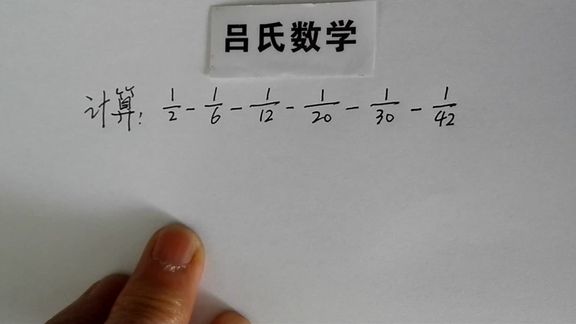 吕氏数学
计算: 1/2 - 1/6 - 1/12 - 1/20 - 1/30 - 1/42